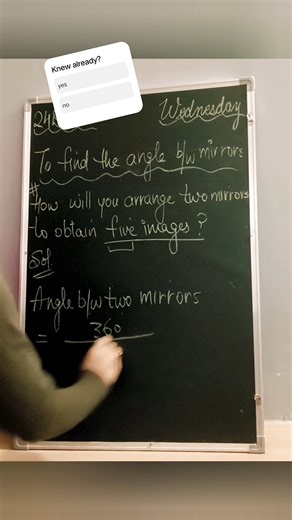 Knew already?
yes
no
Wednesday
To find the angle b/w mirrors
# How will you arrange two mirrors
to obtain five images?
Sol
Angle b/w two mirrors
= 360